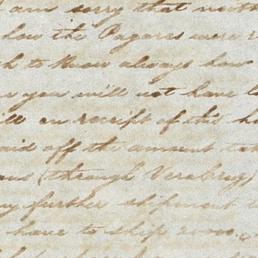 am sorry that
how the Pagares were
to know always how
you will not have
on receipt of this
paid off the amount
(through Verabrug)
further shipment
have to ship 2000